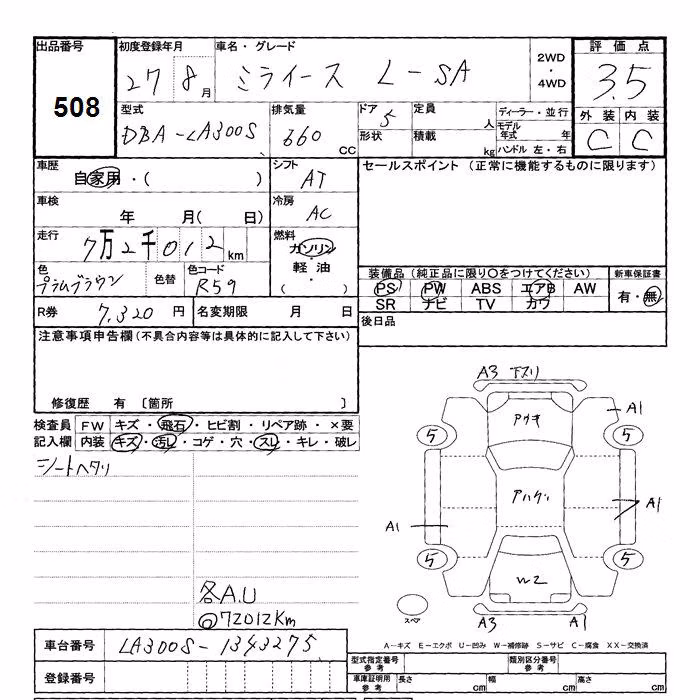 出品番号 初度登録年月 車名・グレード 2WD ・ 4WD 評価点
508 27 8月 ミライース L-SA 3.5
型式 排気量 ドア 定員 人 ディーラー・並行 外装 内装
DBA-LA300S 660 CC 5 形状 積載 kg モデル年式 年 ハンドル 左・右 C C
車歴 自家用・( ) シフト AT セールスポイント (正常に機能するものに限ります)
車検 年 月( 日) 冷房 AC
走行 7万2千012km 燃料 ガソリン・軽油
色 プラムブラウン 色替 色コード R59 装備品(純正品に限り○をつけてください) 新車保証書
PS PW ABS エアB AW 有・無
SR ナビ TV カワ
R券 7,320円 名変期限 月 日 後日品
注意事項申告欄(不具合内容等は具体的に記入して下さい)
修復歴 有 〔箇所 〕
検査員記入欄 FW キズ・飛石・ヒビ割・リペア跡・×要
内装 キズ・汚レ・コゲ・穴・スレ・キレ・破レ
シートヘタリ
各A.U
@72012Km
A3 下スリ
A1
5 5
A1 A1
5 5
W2
スペア
A3 A1
車台番号 LA300S-1343275
A-キズ E-エクボ U-凹み W-補修跡 S-サビ C-腐食 XX-交換済
登録番号
型式指定番号 参考 類別区分番号 参考
車庫証明用 参考 長さ cm 幅 cm 高さ cm